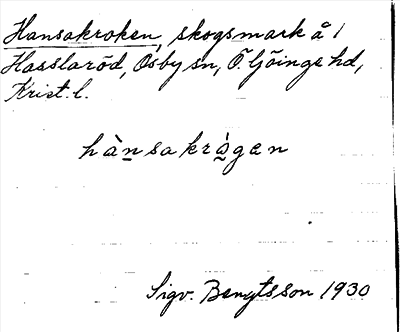 Hansakroken, skogsmark å 1
Hasslaröd, Osby sn, Ö Göinge hd,
Krist. l.
hànsakrógen
Sigv. Bengtsson 1930